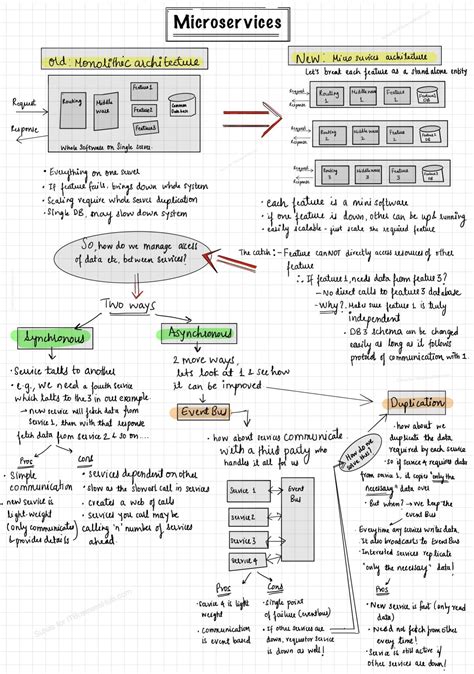 Microservices
Old: Monolithic architecture
Request
Response
Routing
Middle
ware
Feature1
Feature2
Feature3
Common
Data base
Whole Software on Single Server
• Everything on one server
• If feature fails, brings down whole system
• Scaling require whole server duplication
• Single DB, may slow down system
New: Micro services architecture
Let's break each feature as a standalone entity
Request
Response
Routing
1
Middleware
1
Feature
1
Feature1
DB
Request
Response
Routing
2
Middleware
2
Feature
2
DB
Request
Response
Routing
3
Middleware
3
Feature
3
Feature3
DB
• each feature is a mini software
• if one feature is down, other can be up & running
• easily scalable - just scale the required feature
So, how do we manage access
of data etc, between services?
The catch: - Feature CANNOT directly access resources of other
feature
∴ If feature 1, needs data from feature 3?
- No direct calls to feature 3 database
- Why?. Make sure feature 1 is truly
independent
• DB3 schema can be changed
easily as long as it follows
protocol of communication with 1.
Two ways
Synchronous
• Service talks to another
• e.g., we need a fourth service
which talks to the 3 in our example
→ new service will fetch data from
Service 1, then with that response
fetch data from service 2 & so on....
Pros
• Simple
communication
• new service is
light-weight
(only communicates
& provides details)
Cons
• Services dependent on other
• slow as the slowest call in services
• creates a web of calls
• services you call may be
calling 'n' number of services
ahead.
Asynchronous
2 more ways,
lets look at 1 & see how
it can be improved
Event Bus
• how about services communicate
with a third party who
handles it all for us
Service 1
Service 2
Service 3
Service 4
Event
Bus
Pros
• Service 4 is light
weight
• Communication
is event based
Cons
• Single point
of failure (event bus)
• If other services are
down, requestor service
is down as well!
How do we
solve this?
Duplication
• how about we
duplicate the data
required by each service
• so if service 4 requires data
from service 1, it copies "only the
necessary" data over
• But when? → we keep the
event Bus
• Everytime any service writes data.
• It also broadcasts to Event Bus
• Interested services replicate
"only the necessary" data!
Pros
• New service is fast (only read
data)
• Need not fetch from other
every time!
• Service is still active if
other services are down!